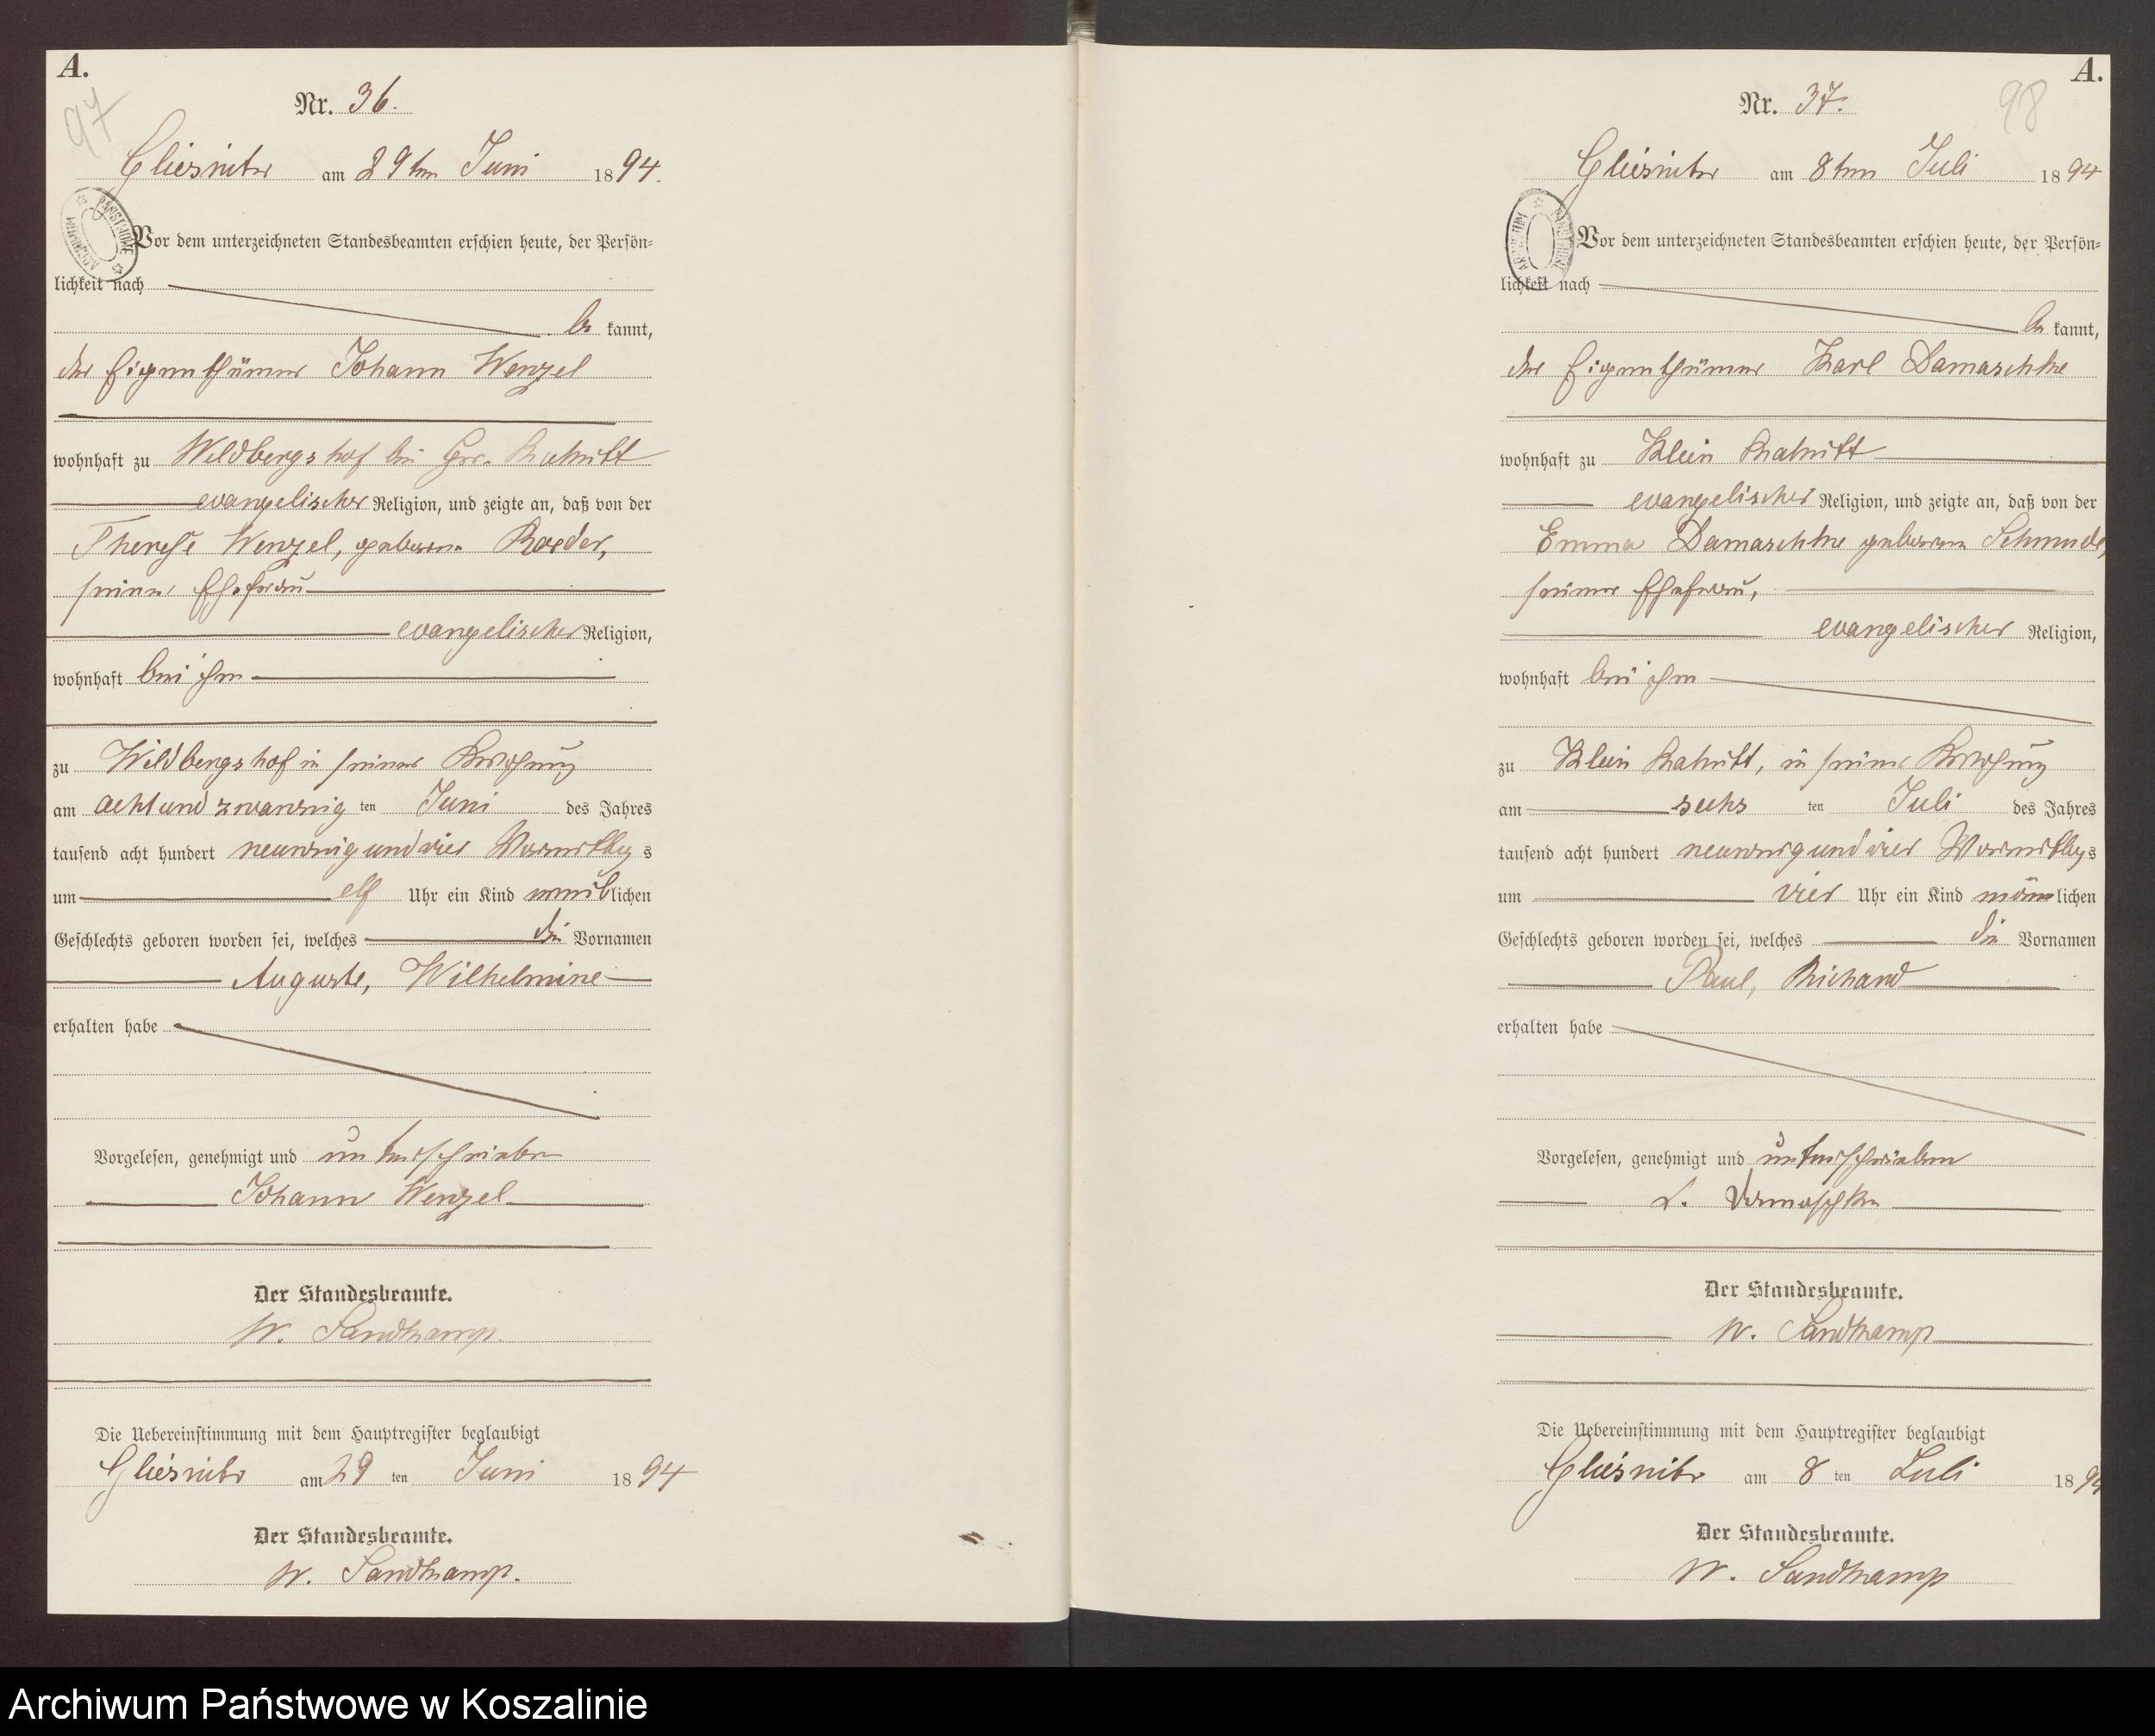 A.
97
Nr. 36.
Gliesnitz am 29ten Juni 1894.
Vor dem unterzeichneten Standesbeamten erschien heute, der Persön-
lichkeit nach
be kannt,
der Eigenthümer Johann Wenzel
wohnhaft zu Wildbergshof bei Gr. Rakitt
evangelischer Religion, und zeigte an, daß von der
Therese Wenzel, geboren Roeder,
seiner Ehefrau
evangelischer Religion,
wohnhaft bei ihm
zu Wildbergshof in seiner Wohnung
am achtundzwanzig ten Juni des Jahres
tausend acht hundert neunzig und vier Vormittag s
um elf Uhr ein Kind weiblichen
Geschlechts geboren worden sei, welches die Vornamen
Auguste, Wilhelmine
erhalten habe
Vorgelesen, genehmigt und unterschrieben
Johann Wenzel
Der Standesbeamte.
W. Sandkamp.
Die Uebereinstimmung mit dem Hauptregister beglaubigt
Gliesnitz am 29 ten Juni 1894
Der Standesbeamte.
W. Sandkamp.
A.
98
Nr. 37.
Gliesnitz am 8ten Juli 1894
Vor dem unterzeichneten Standesbeamten erschien heute, der Persön-
lichkeit nach
be kannt,
der Eigenthümer Karl Damaschke
wohnhaft zu Klein Rakitt
evangelischer Religion, und zeigte an, daß von der
Emma Damaschke geboren Schmude,
seiner Ehefrau,
evangelischer Religion,
wohnhaft bei ihm
zu Klein Rakitt, in seiner Wohnung
am sechs ten Juli des Jahres
tausend acht hundert neunzig und vier Vormittag s
um vier Uhr ein Kind männlichen
Geschlechts geboren worden sei, welches die Vornamen
Paul, Richard
erhalten habe
Vorgelesen, genehmigt und unterschrieben
Damaschke
Der Standesbeamte.
W. Sandkamp
Die Uebereinstimmung mit dem Hauptregister beglaubigt
Gliesnitz am 8 ten Juli 1894
Der Standesbeamte.
W. Sandkamp
Archiwum Państwowe w Koszalinie